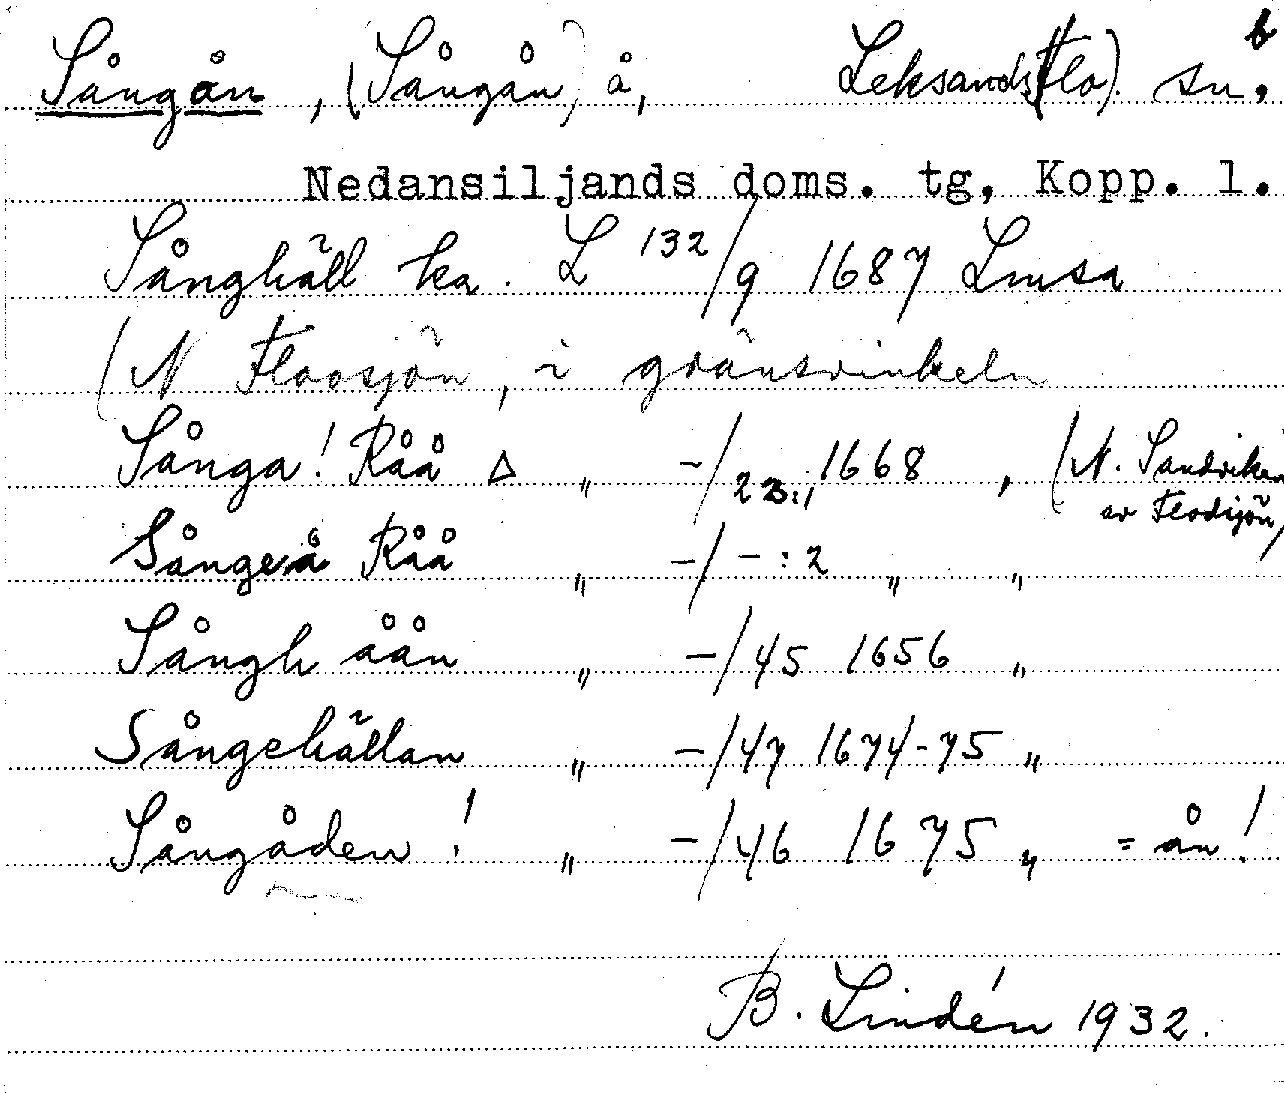 Sångån, (Sångån) å, Leksands (Flo). sn, b
Nedansiljands doms. tg, Kopp. l.
Sånghäll ka. L 132/9 1687 Lmsa
(N Floosjön, i gränsvinkeln
Sånga! Råå Δ „ -/23:1 1668 , (N. Sandviken
av Flodsjön)
Sångeå Råå „ -/-:2 „ „
Sångh åån „ -/45 1656 „
Sångehällan „ -/47 1674-75 „
Sångåden! „ -/46 1675 „ = ån!
B. Lindén 1932.